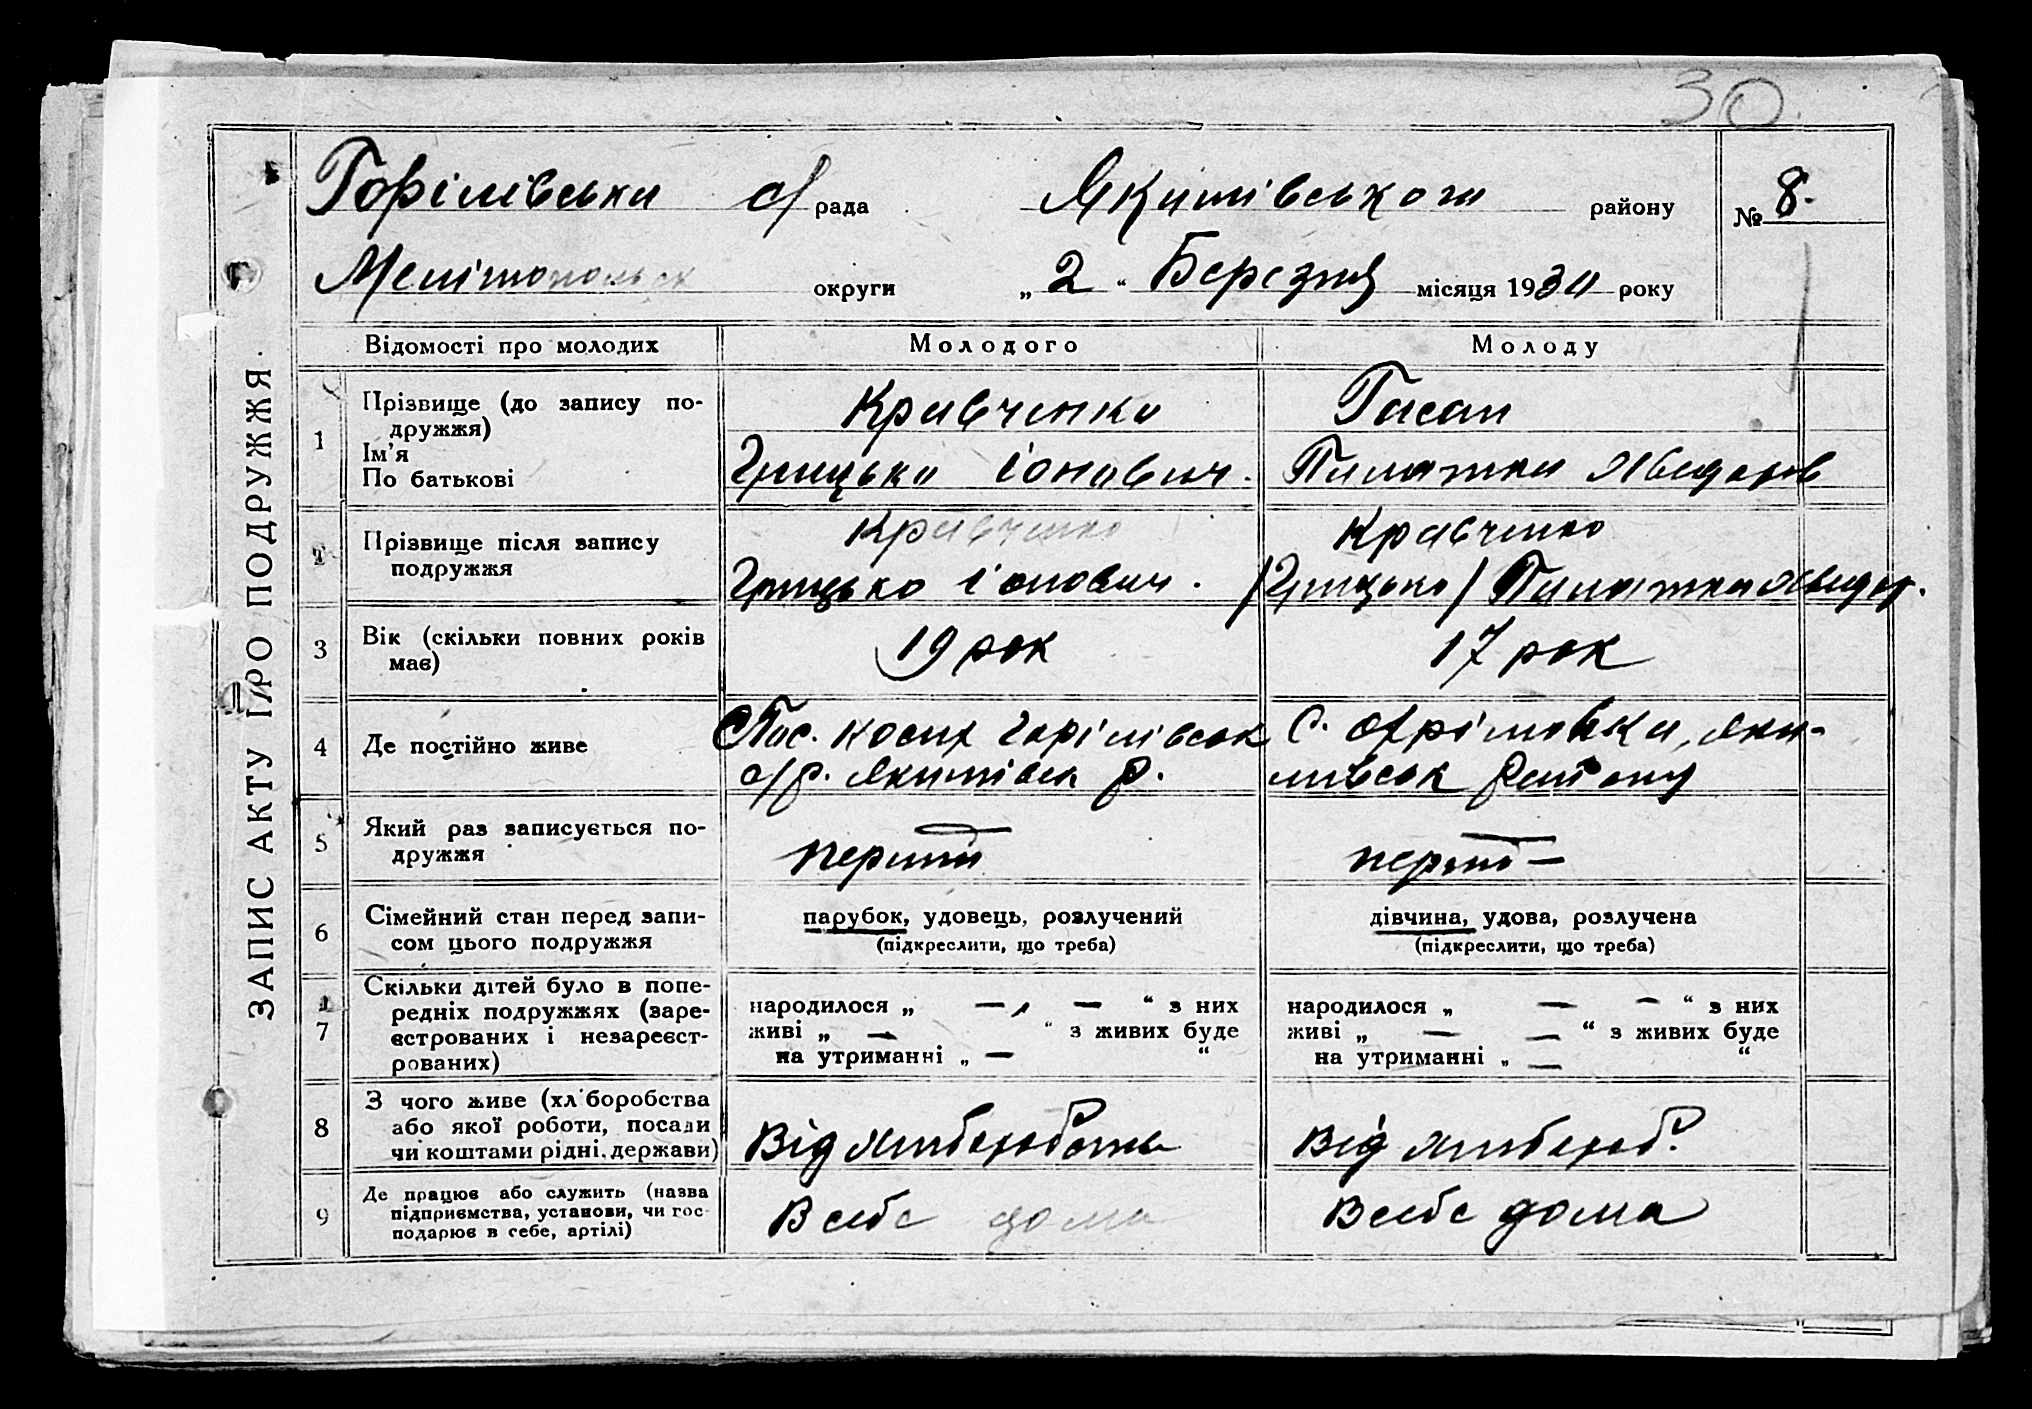 30
ЗАПИС АКТУ ПРО ПОДРУЖЖЯ.
Горілівська с/рада Якимівського району № 8.
Мелітопольск округи „ 2 “ Березня місяця 1930 року
Відомості про молодих Молодого Молоду
1 Прізвище (до запису по-
дружжя)
Ім'я
По батькові
Кравченко
Грицько Іонович.
Гасан
Пилажка
Прізвище після запису
подружжя
Кравченко
Грицько Іонович.
Кравченко
/Грицько/ Пилажка
3 Вік (скільки повних років
має)
19 рок
17 рок
4 Де постійно живе
Горілівськ
с/р. Якимівск р.
с. Яки-
мивськ району
5 Який раз записується по-
дружжя
перший
перший
6 Сімейний стан перед запи-
сом цього подружжя
парубок, удовець, розлучений
(підкреслити, що треба)
дівчина, удова, розлучена
(підкреслити, що треба)
7 Скільки дітей було в попе-
редніх подружжях (заре-
єстрованих і незареєст-
рованих)
народилося „ — , — “ з них
живі „ — “ з живих буде
на утриманні „ — “
народилося „ — — “ з них
живі „ — — “ з живих буде
на утриманні „ — “
8 З чого живе (хліборобства
або якої роботи, посади
чи коштами рідні, держави)
Від
Від
9 Де працює або служить (назва
підприємства, установи, чи гос-
подарює в себе, артілі)
В себе дома
В себе дома